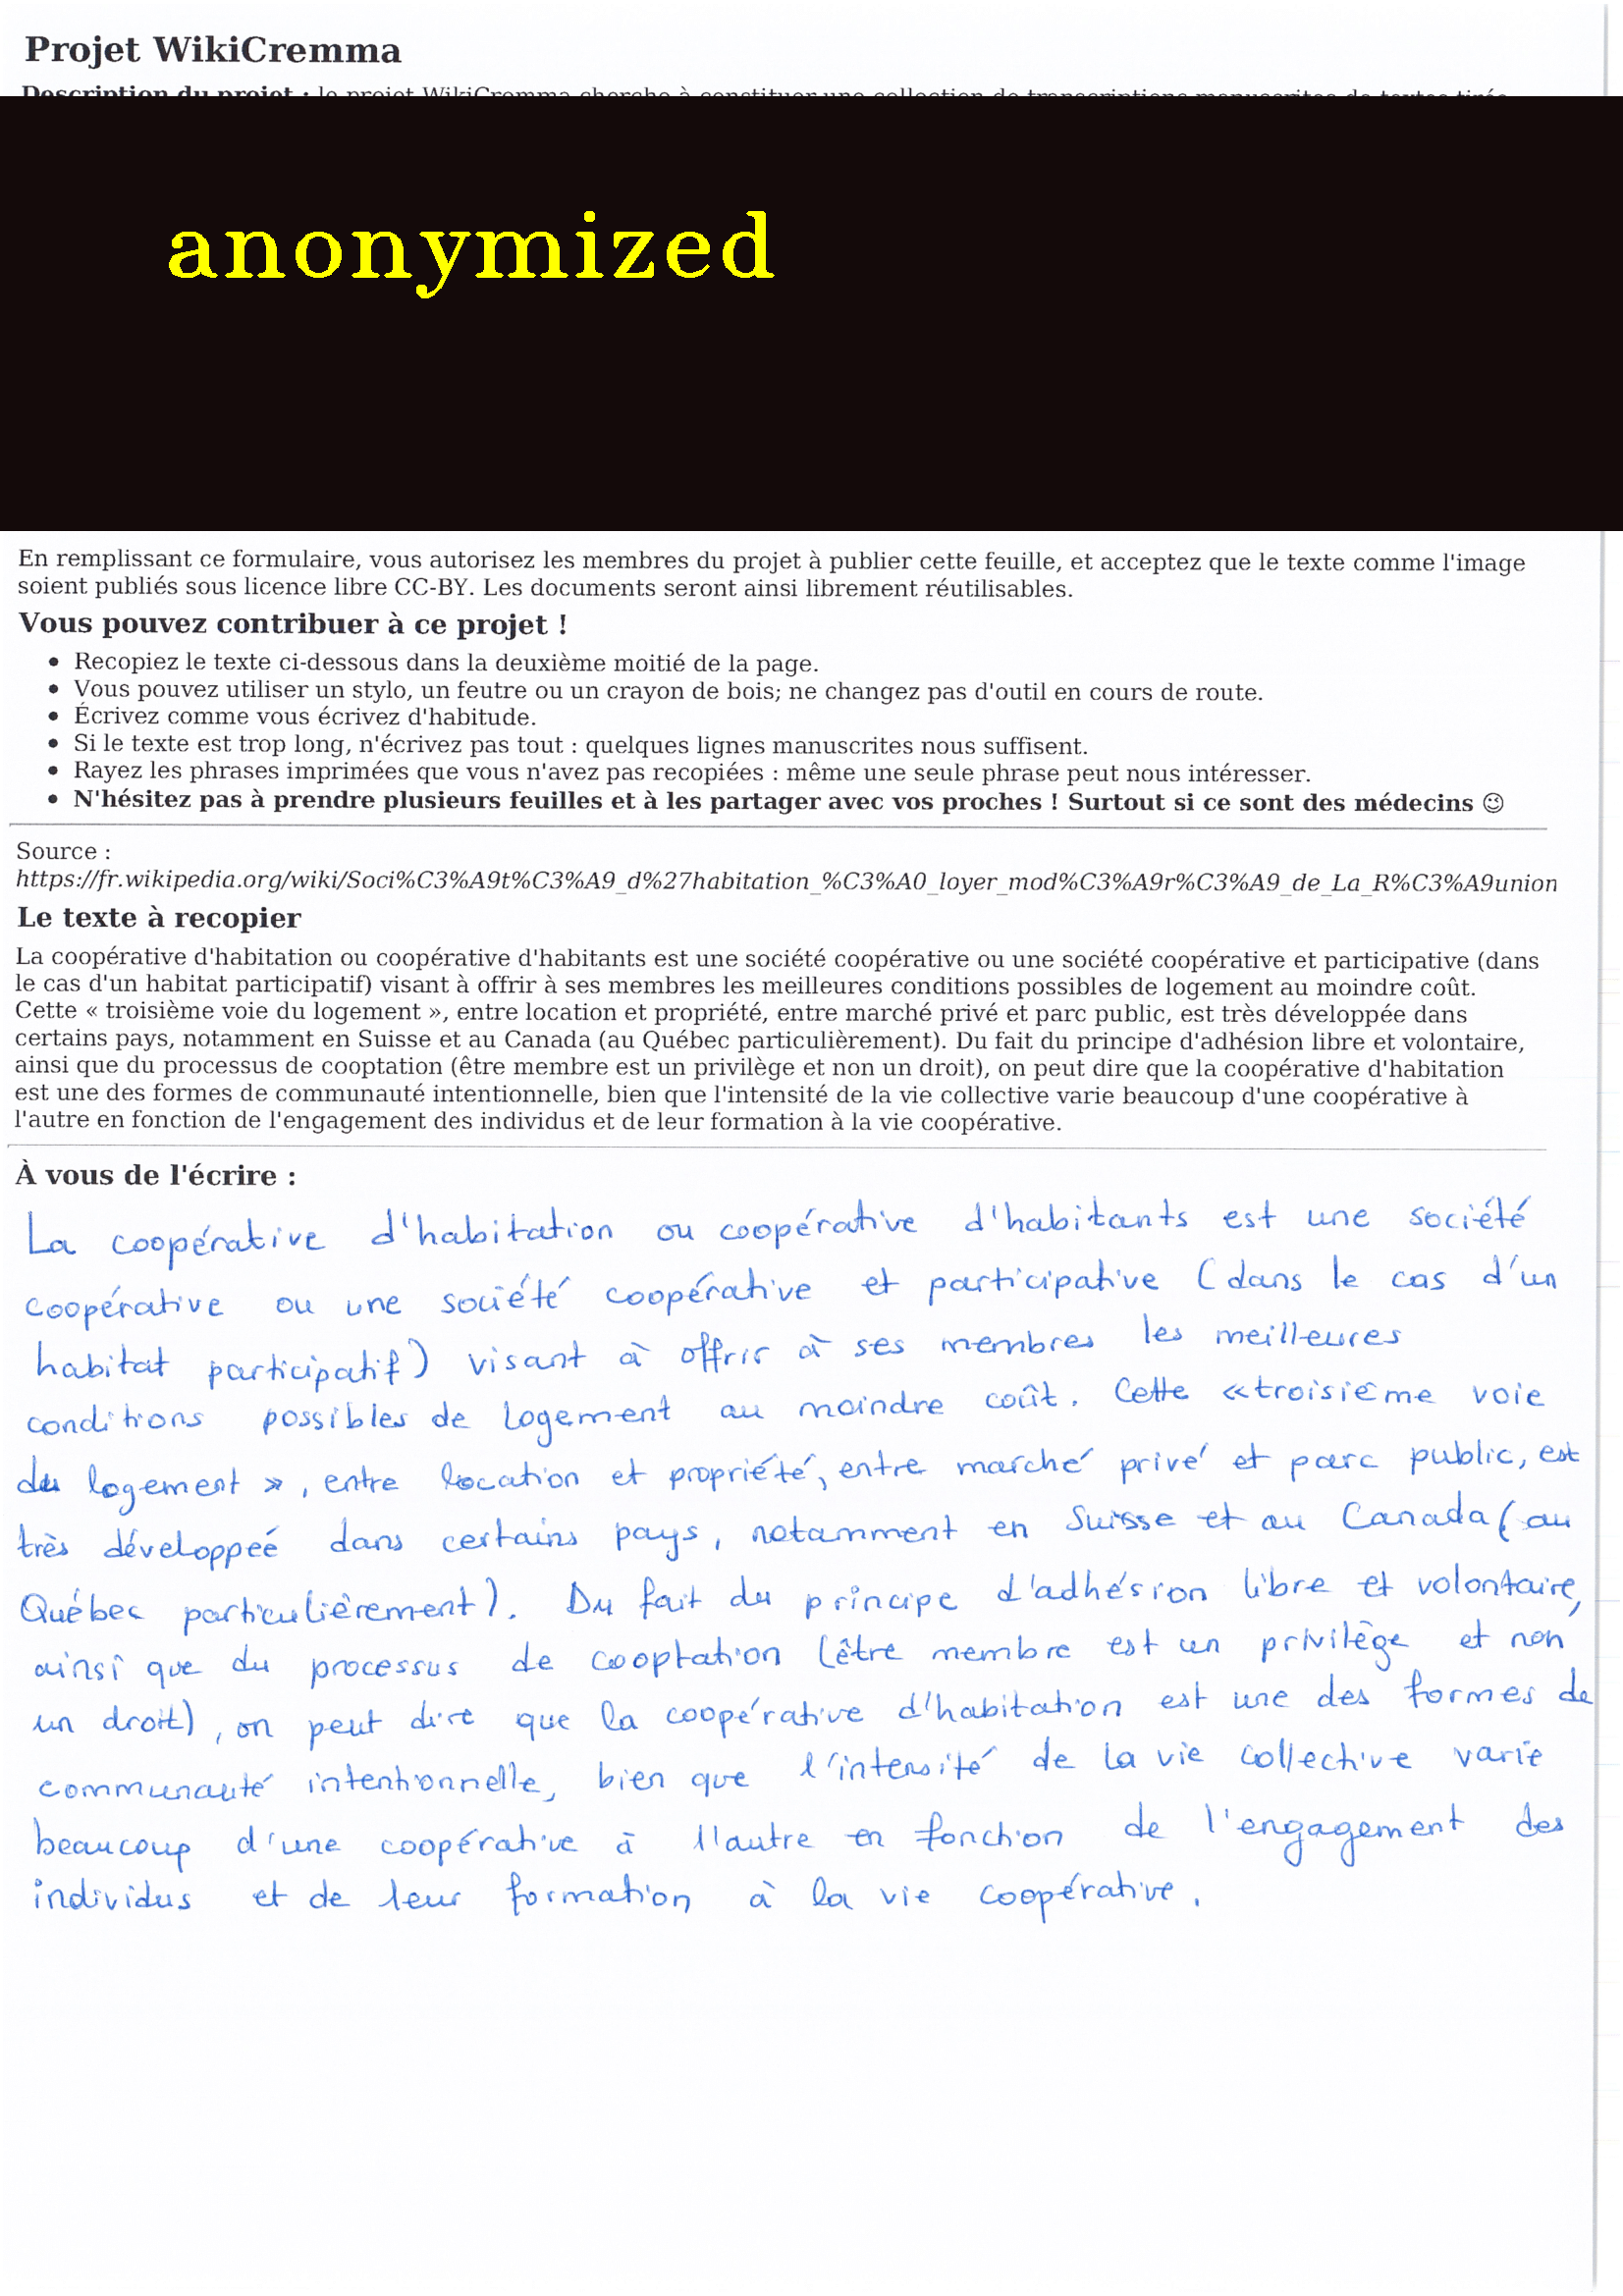 Projet WikiCremma
Description du projet : le projet WikiCremma cherche à constituer une collection de transcriptions manuscrites de textes tirés
anonymized
En remplissant ce formulaire, vous autorisez les membres du projet à publier cette feuille, et acceptez que le texte comme l'image
soient publiés sous licence libre CC-BY. Les documents seront ainsi librement réutilisables.
Vous pouvez contribuer à ce projet !
• Recopiez le texte ci-dessous dans la deuxième moitié de la page.
• Vous pouvez utiliser un stylo, un feutre ou un crayon de bois; ne changez pas d'outil en cours de route.
• Écrivez comme vous écrivez d'habitude.
• Si le texte est trop long, n'écrivez pas tout : quelques lignes manuscrites nous suffisent.
• Rayez les phrases imprimées que vous n'avez pas recopiées : même une seule phrase peut nous intéresser.
• N'hésitez pas à prendre plusieurs feuilles et à les partager avec vos proches ! Surtout si ce sont des médecins 😉
Source :
https://fr.wikipedia.org/wiki/Soci%C3%A9t%C3%A9_d%27habitation_%C3%A0_loyer_mod%C3%A9r%C3%A9_de_La_R%C3%A9union
Le texte à recopier
La coopérative d'habitation ou coopérative d'habitants est une société coopérative ou une société coopérative et participative (dans
le cas d'un habitat participatif) visant à offrir à ses membres les meilleures conditions possibles de logement au moindre coût.
Cette « troisième voie du logement », entre location et propriété, entre marché privé et parc public, est très développée dans
certains pays, notamment en Suisse et au Canada (au Québec particulièrement). Du fait du principe d'adhésion libre et volontaire,
ainsi que du processus de cooptation (être membre est un privilège et non un droit), on peut dire que la coopérative d'habitation
est une des formes de communauté intentionnelle, bien que l'intensité de la vie collective varie beaucoup d'une coopérative à
l'autre en fonction de l'engagement des individus et de leur formation à la vie coopérative.
À vous de l'écrire :
La coopérative d'habitation ou coopérative d'habitants est une société
coopérative ou une société coopérative et participative (dans le cas d'un
habitat participatif) visant à offrir à ses membres les meilleures
conditions possibles de logement au moindre coût. Cette « troisième voie
du logement », entre location et propriété, entre marché privé et parc public, est
très développeé dans certains pays, notamment en Suisse et au Canada (au
Québec particulièrement). Du fait du principe d'adhésion libre et volontaire,
ainsi que du processus de cooptation (être membre est un privilège et non
un droit), on peut dire que la coopérative d'habitation est une des formes de
communauté intentionnelle, bien que l'intensité de la vie collective varie
beaucoup d'une coopérative à l'autre en fonction de l'engagement des
individus et de leur formation à la vie coopérative.